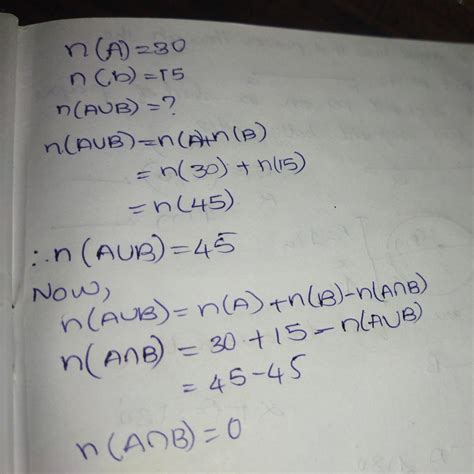 n(A)=30
n(b)=15
n(A∪B)=?
n(A∪B)=n(A+n(B)
=n(30)+n(15)
=n(45)
∴n(A∪B)=45
Now,
n(A∪B)=n(A)+n(B)-n(A∩B)
n(A∩B)=30+15-n(A∪B)
=45-45
n(A∩B)=0